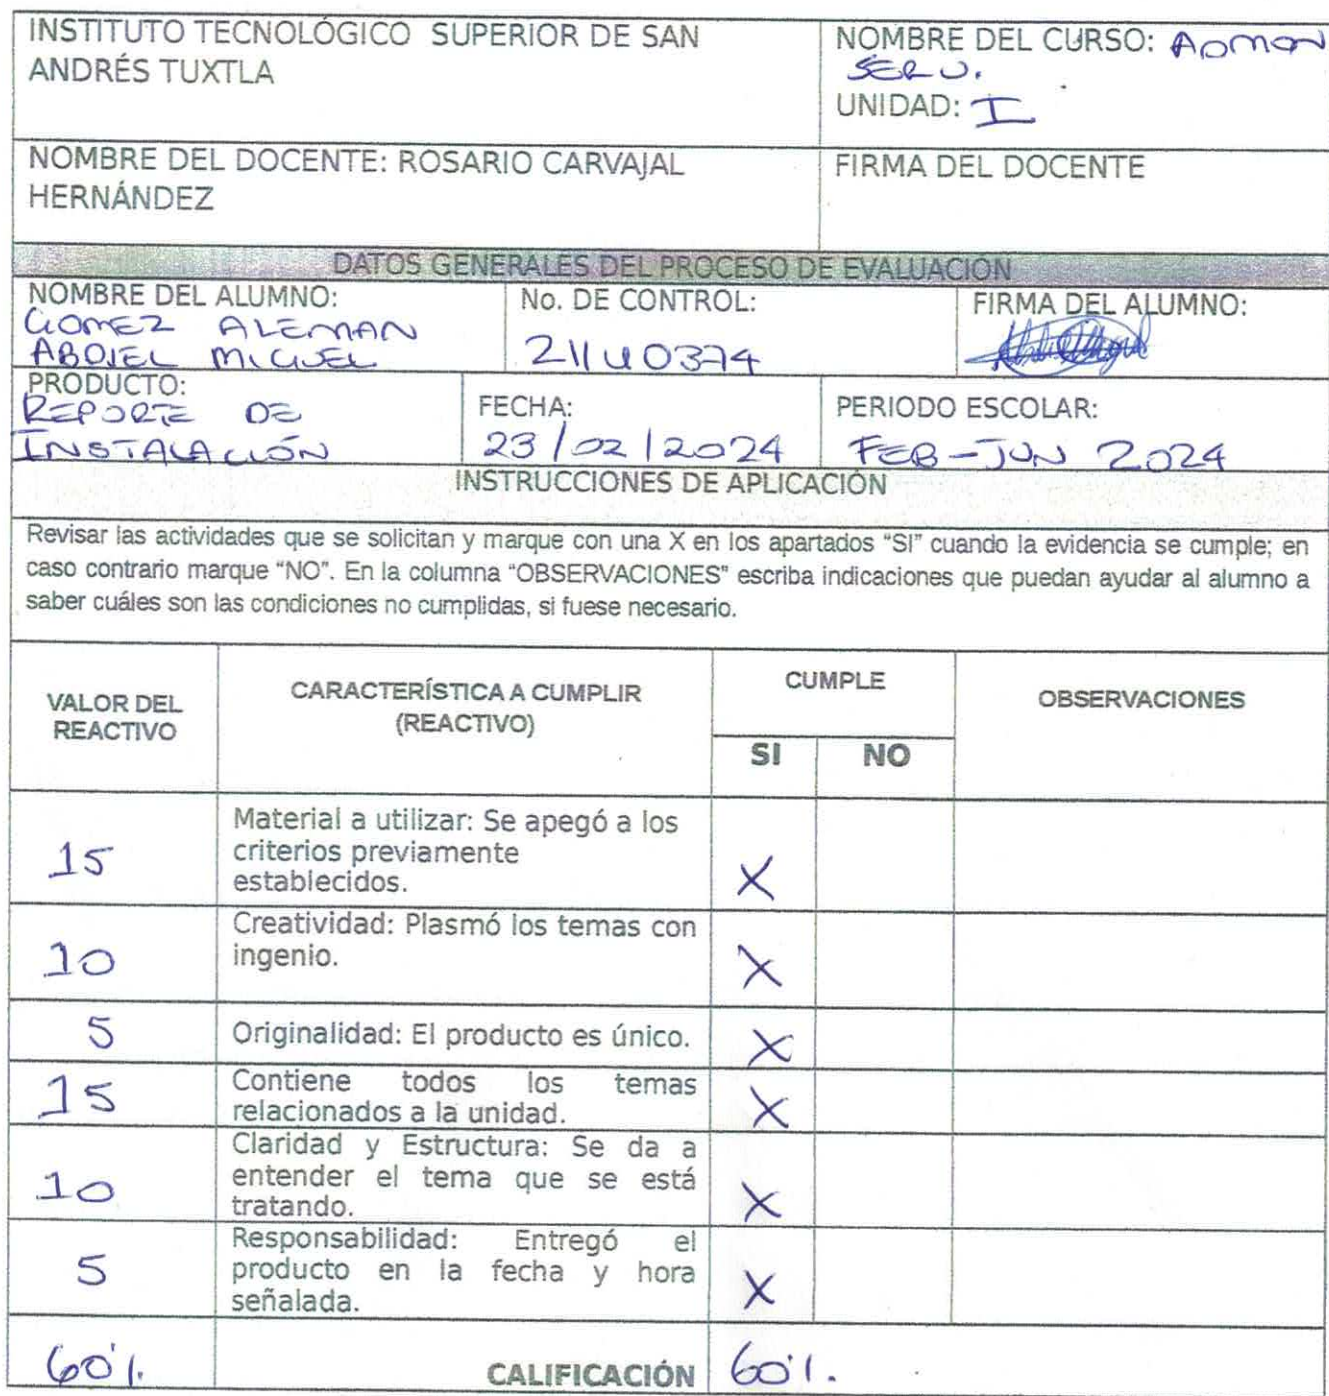 INSTITUTO TECNOLÓGICO SUPERIOR DE SAN
ANDRÉS TUXTLA
NOMBRE DEL CURSO: ADMON
SERV.
UNIDAD: I
NOMBRE DEL DOCENTE: ROSARIO CARVAJAL
HERNÁNDEZ
FIRMA DEL DOCENTE
DATOS GENERALES DEL PROCESO DE EVALUACIÓN
NOMBRE DEL ALUMNO:
GOMEZ ALEMAN
ABDIEL MIGUEL
No. DE CONTROL:
211U0374
FIRMA DEL ALUMNO:
PRODUCTO:
REPORTE DE
INSTALACIÓN
FECHA:
23/02/2024
PERIODO ESCOLAR:
FEB-JUN 2024
INSTRUCCIONES DE APLICACIÓN
Revisar las actividades que se solicitan y marque con una X en los apartados “SI” cuando la evidencia se cumple; en
caso contrario marque “NO”. En la columna “OBSERVACIONES” escriba indicaciones que puedan ayudar al alumno a
saber cuáles son las condiciones no cumplidas, si fuese necesario.
VALOR DEL
REACTIVO
CARACTERÍSTICA A CUMPLIR
(REACTIVO)
CUMPLE
SI NO
OBSERVACIONES
15
Material a utilizar: Se apegó a los
criterios previamente
establecidos.
X
10
Creatividad: Plasmó los temas con
ingenio.
X
5
Originalidad: El producto es único.
X
15
Contiene todos los temas
relacionados a la unidad.
X
10
Claridad y Estructura: Se da a
entender el tema que se está
tratando.
X
5
Responsabilidad: Entregó el
producto en la fecha y hora
señalada.
X
60%
CALIFICACIÓN
60%.